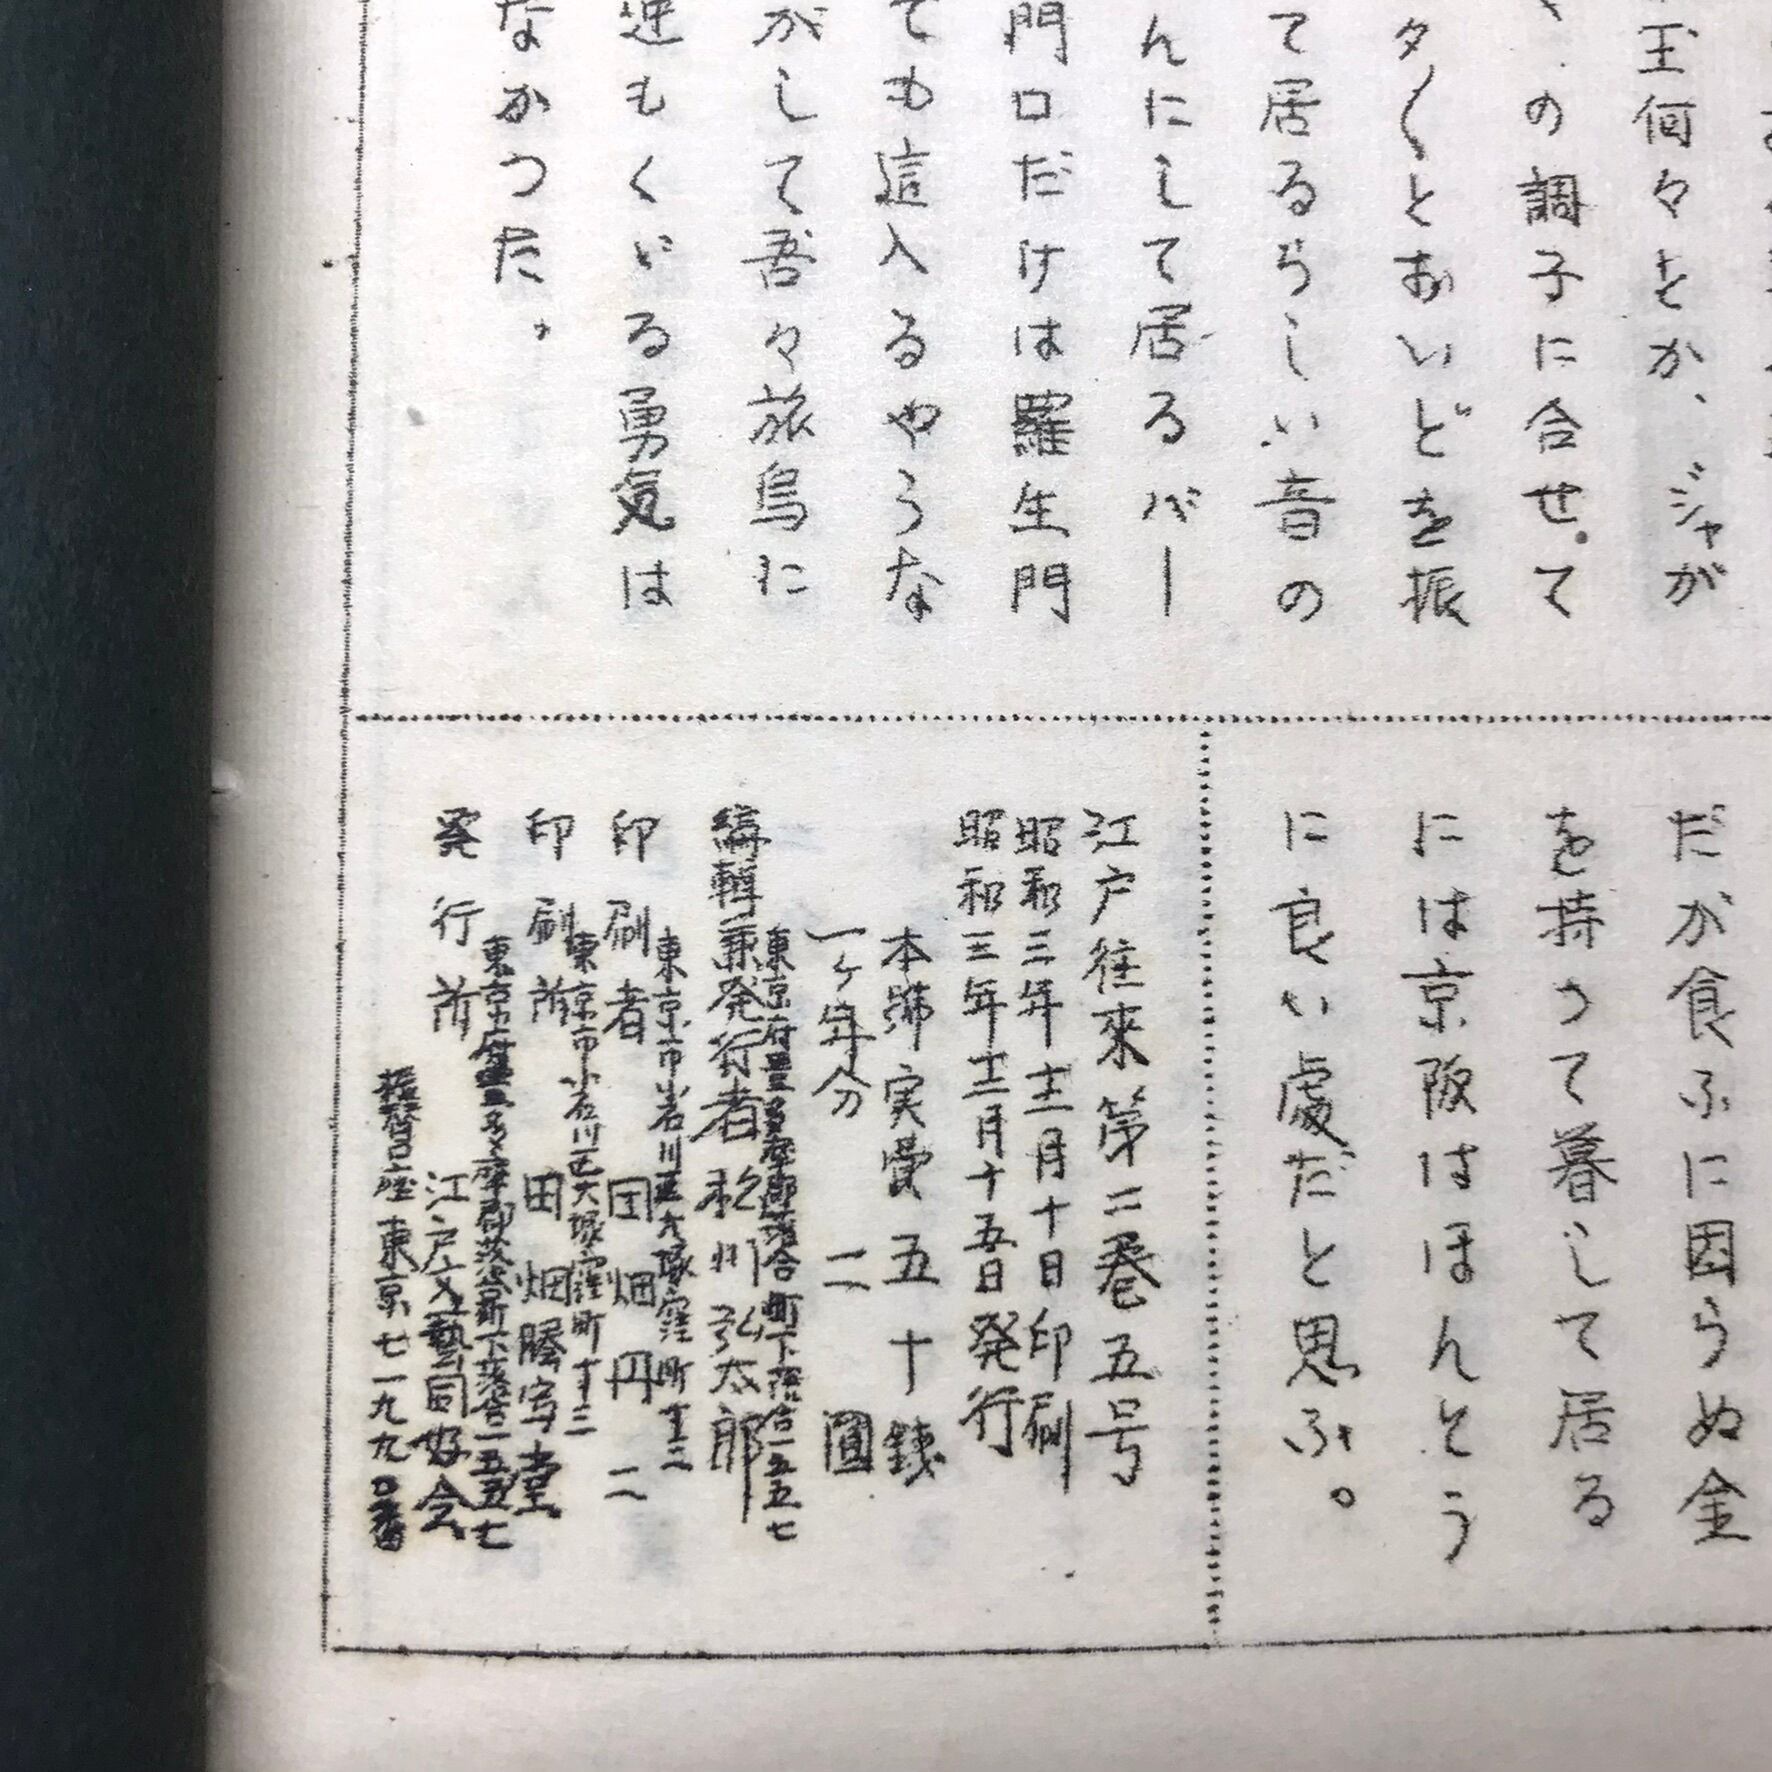 玉何々とか、ジャが
の調子に合せて
タ〱とおいどを振
て居るらしい音の
んにして居るバー
門口だけは羅生門
ても這入るやうな
がして吾々旅鳥に
もくゞる勇気は
なかつた。
だが食ふに困らぬ金
を持つて暮して居る
には京阪はほんとう
に良い處だと思ふ。
江戸往來第二巻五号
昭和三年十二月十日印刷
昭和三年十二月十五日発行
本號実費五十錢
一ヶ年分 二圓
東京府豊多摩郡落合町下落合一五五七
編輯兼発行者 松川弘太郎
東京市小石川区大塚窪町
印刷者 田畑円二
東京市小石川区大塚窪町
印刷所 田畑謄写堂
東京府豊多摩郡落合町下落合一五五七
発行所 江戸文藝同好会
振替口座東京七一九九〇番